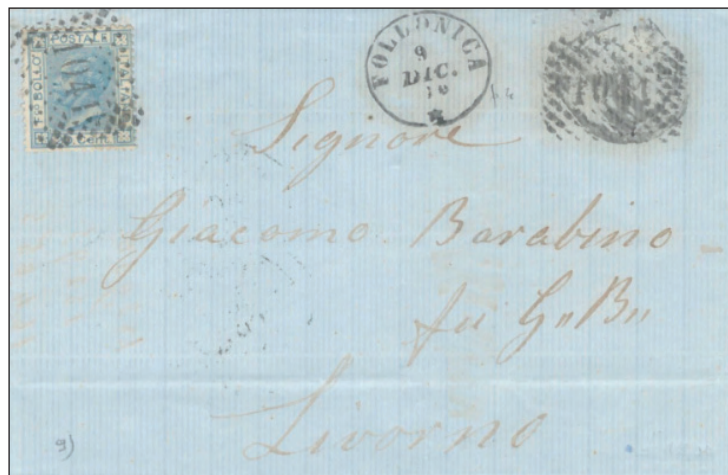 POSTALE
BOLLO
1041
FOLLONICA
9
DIC.
Signore
Giacomo Barabino
fu G„B„
Livorno
9)